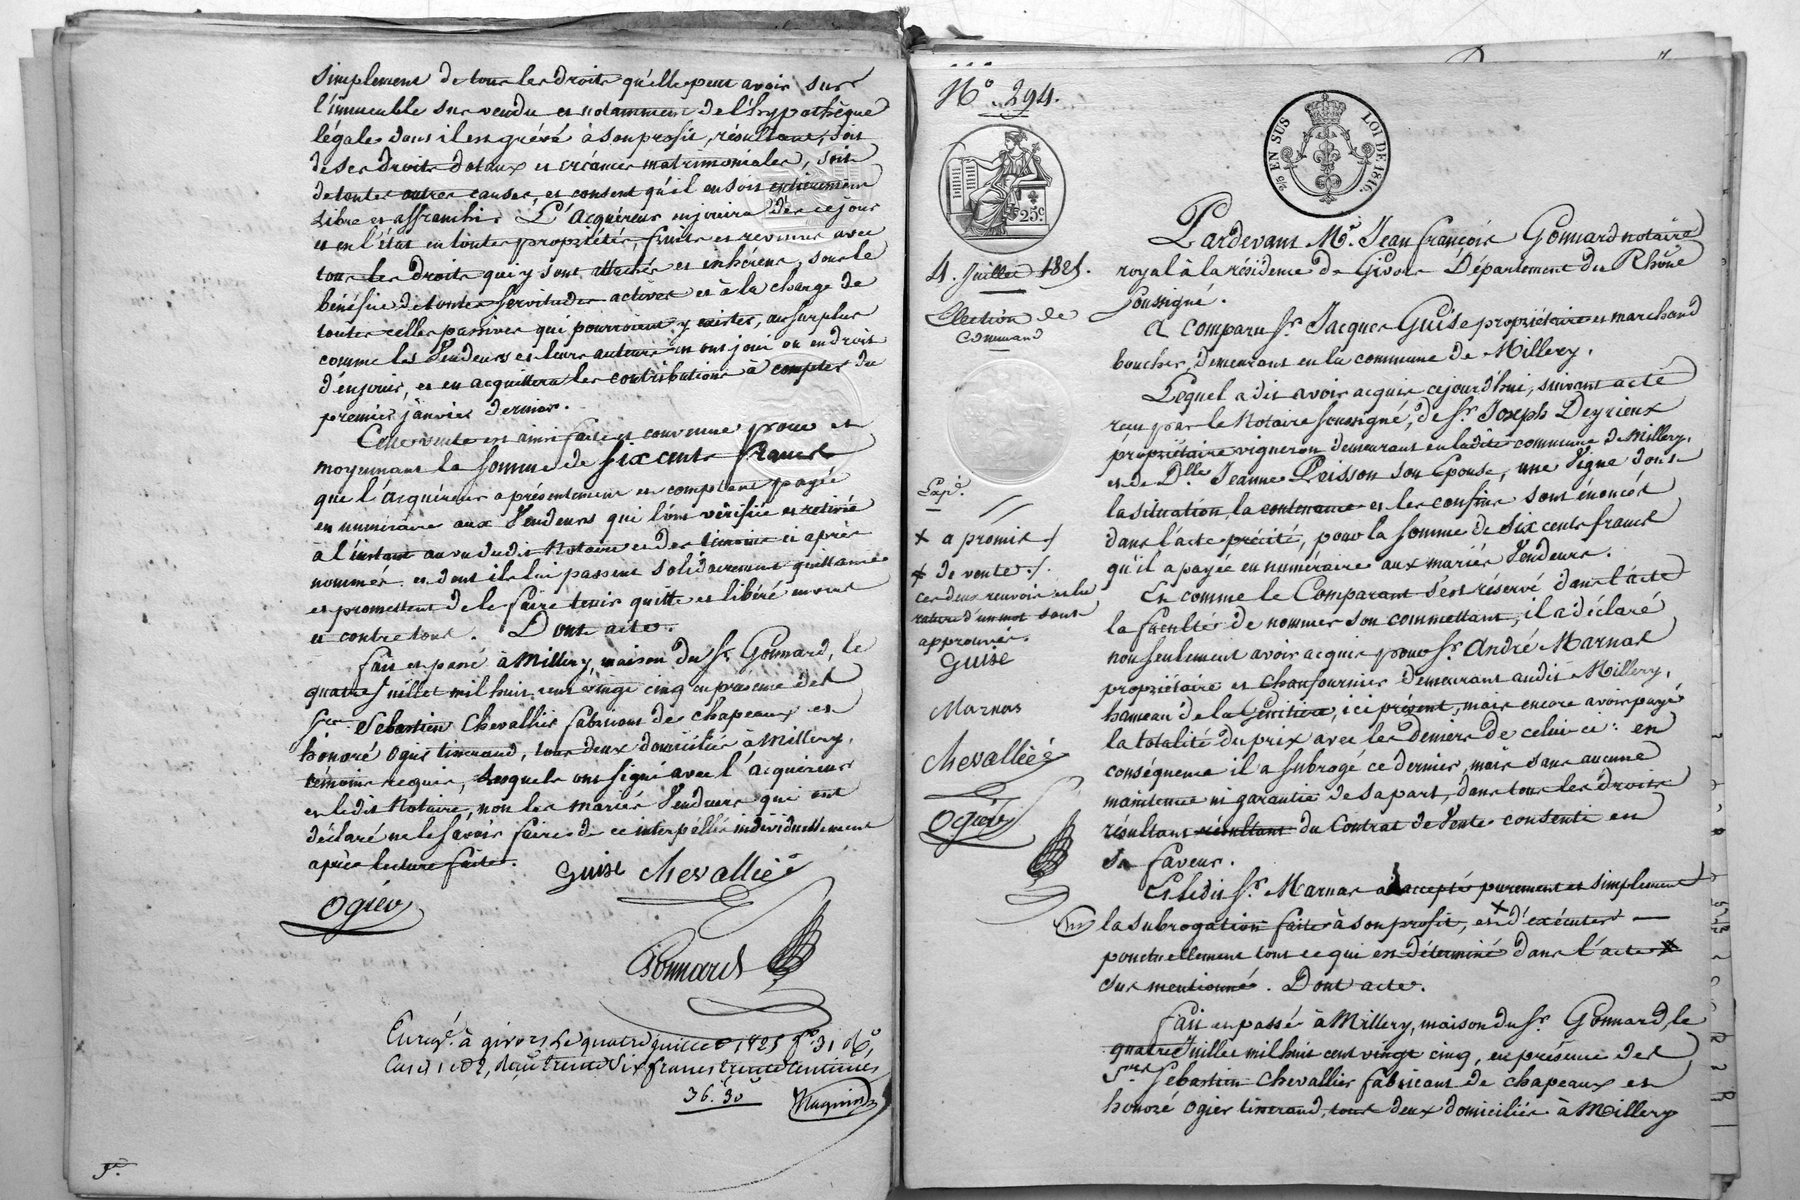 simplement de tous les droits qu'elle peut avoir sur
l'immeuble sus vendu et notamment de l'hypothèque
légale dont il est grévé à son profit, résultant, soit
de ses droits dotaux et créances matrimoniales, soit
de toutes autres causes, et consent qu'il en soit entièrement
libre et affranchi. L'acquéreur en jouira dès ce jour
et en l'état en toutes propriétés, fruits et revenus avec
tous les droits qui y sont attachés et inhérens, sous le
bénéfice de toutes servitudes actives et à la charge de
toutes celles passives qui pourroient y exister, au surplus
comme les Vendeurs et leurs auteurs en ont joui ou eu droit
d'en jouir, et en acquittera les contributions à compter du
premier janvier dernier.
Cette vente est ainsi faite et convenue pour et
moyennant la somme de six cents francs
que l'acquéreur a présentement et comptant payée
en numéraire aux Vendeurs qui l'ont vérifiée et retirée
à l'instant au vu dudit Notaire et des témoins ci après
nommés et dont ils lui passent solidairement quittance
et promettent de le faire tenir quitte et libéré envers
et contre tous. Dont acte.
fait et passé à Millery, maison du Sr. Gonnard, le
quatre Juillet mil huit cent vingt cinq en présence des
Srs. Sébastien Chevallier fabricant de chapeaux et
honoré Ogier tisserand, tous deux domiciliés à Millery,
témoins requis, lesquels ont signé avec l'acquéreur
et ledit Notaire, non les mariés Vendeurs qui ont
déclaré ne le savoir faire de ce interpellés individuellement
après lecture faite.
Guise Chevallié
Ogier
Gonnard
Enregé. à givors le quatre juillet 1825 fo. 31 Ro,
Cases 1 et 2, reçu trente six francs trente centimes
36. 30
Magnin
No. 294.
2/5 EN SUS LOI DE 1816.
25c.
4. Juillet 1825.
Élection de
Command
Expé.
x a promis ./
x de vente ./.
ces deux renvois et la
rature d'un mot sont
approuvés.
Guise
Marnas
Chevallié
Ogier
Pardevant Me. Jean françois Gonnard notaire
royal à la résidence de Givors Département du Rhône
soussigné.
A comparu Sr. Jacques Guise propriétaire et marchand
boucher, demeurant en la commune de Millery.
Lequel a dit avoir acquis cejourd'hui, suivant acte
reçu par le Notaire soussigné, de Sr. Joseph Deyrieux
propriétaire vigneron demeurant en ladite commune de Millery,
et de Dlle. Jeanne Poisson son Epouse, une Vigne dont
la situation, la contenance et les confins sont énoncés
dans l'acte précité, pour la somme de six cents francs
qu'il a payée en numéraire aux mariés Vendeurs.
Et comme le Comparant s'est réservé dans l'acte
la faculté de nommer son commettant, il a déclaré
non seulement avoir acquis pour Sr. André Marnas
propriétaire et chaufournier demeurant audit Millery,
hameau de la , ici présent, mais encore avoir payé
la totalité du prix avec les deniers de celui-ci: en
conséquence il a subrogé ce dernier, mais sans aucune
maintenue ni garantie de sa part, dans tous les droits
résultant résultant du Contrat de Vente consenti en
sa faveur.
Et ledit Sr. Marnas a accepté purement et simplement
la subrogation faite à son profit, et x d'exécuter
ponctuellement tout ce qui est déterminé dans l'acte x
sus mentionné. Dont acte.
fait et passé à Millery, maison du Sr. Gonnard, le
quatre Juillet mil huit cent vingt cinq, en présence des
Srs. Sébastien Chevallier fabricant de chapeaux et
honoré Ogier tisserand, tous deux domiciliés à Millery